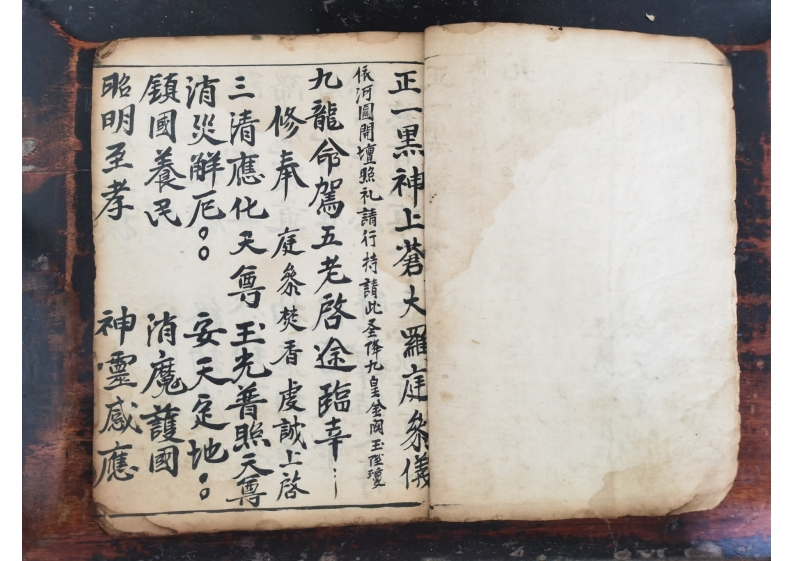 正一黒神上蒼大羅庭叅儀
依河圓開壇照礼請行持請此圣降九皇金闕玉陛瓊
九龍命駕五老啓途臨幸
修奉 庭叅焚香虔誠上啓
三清應化天尊 玉光普照天尊
消災解厄。。 安天定地。。
鎮國養民 消魔護國
昭明至孝 神靈感應